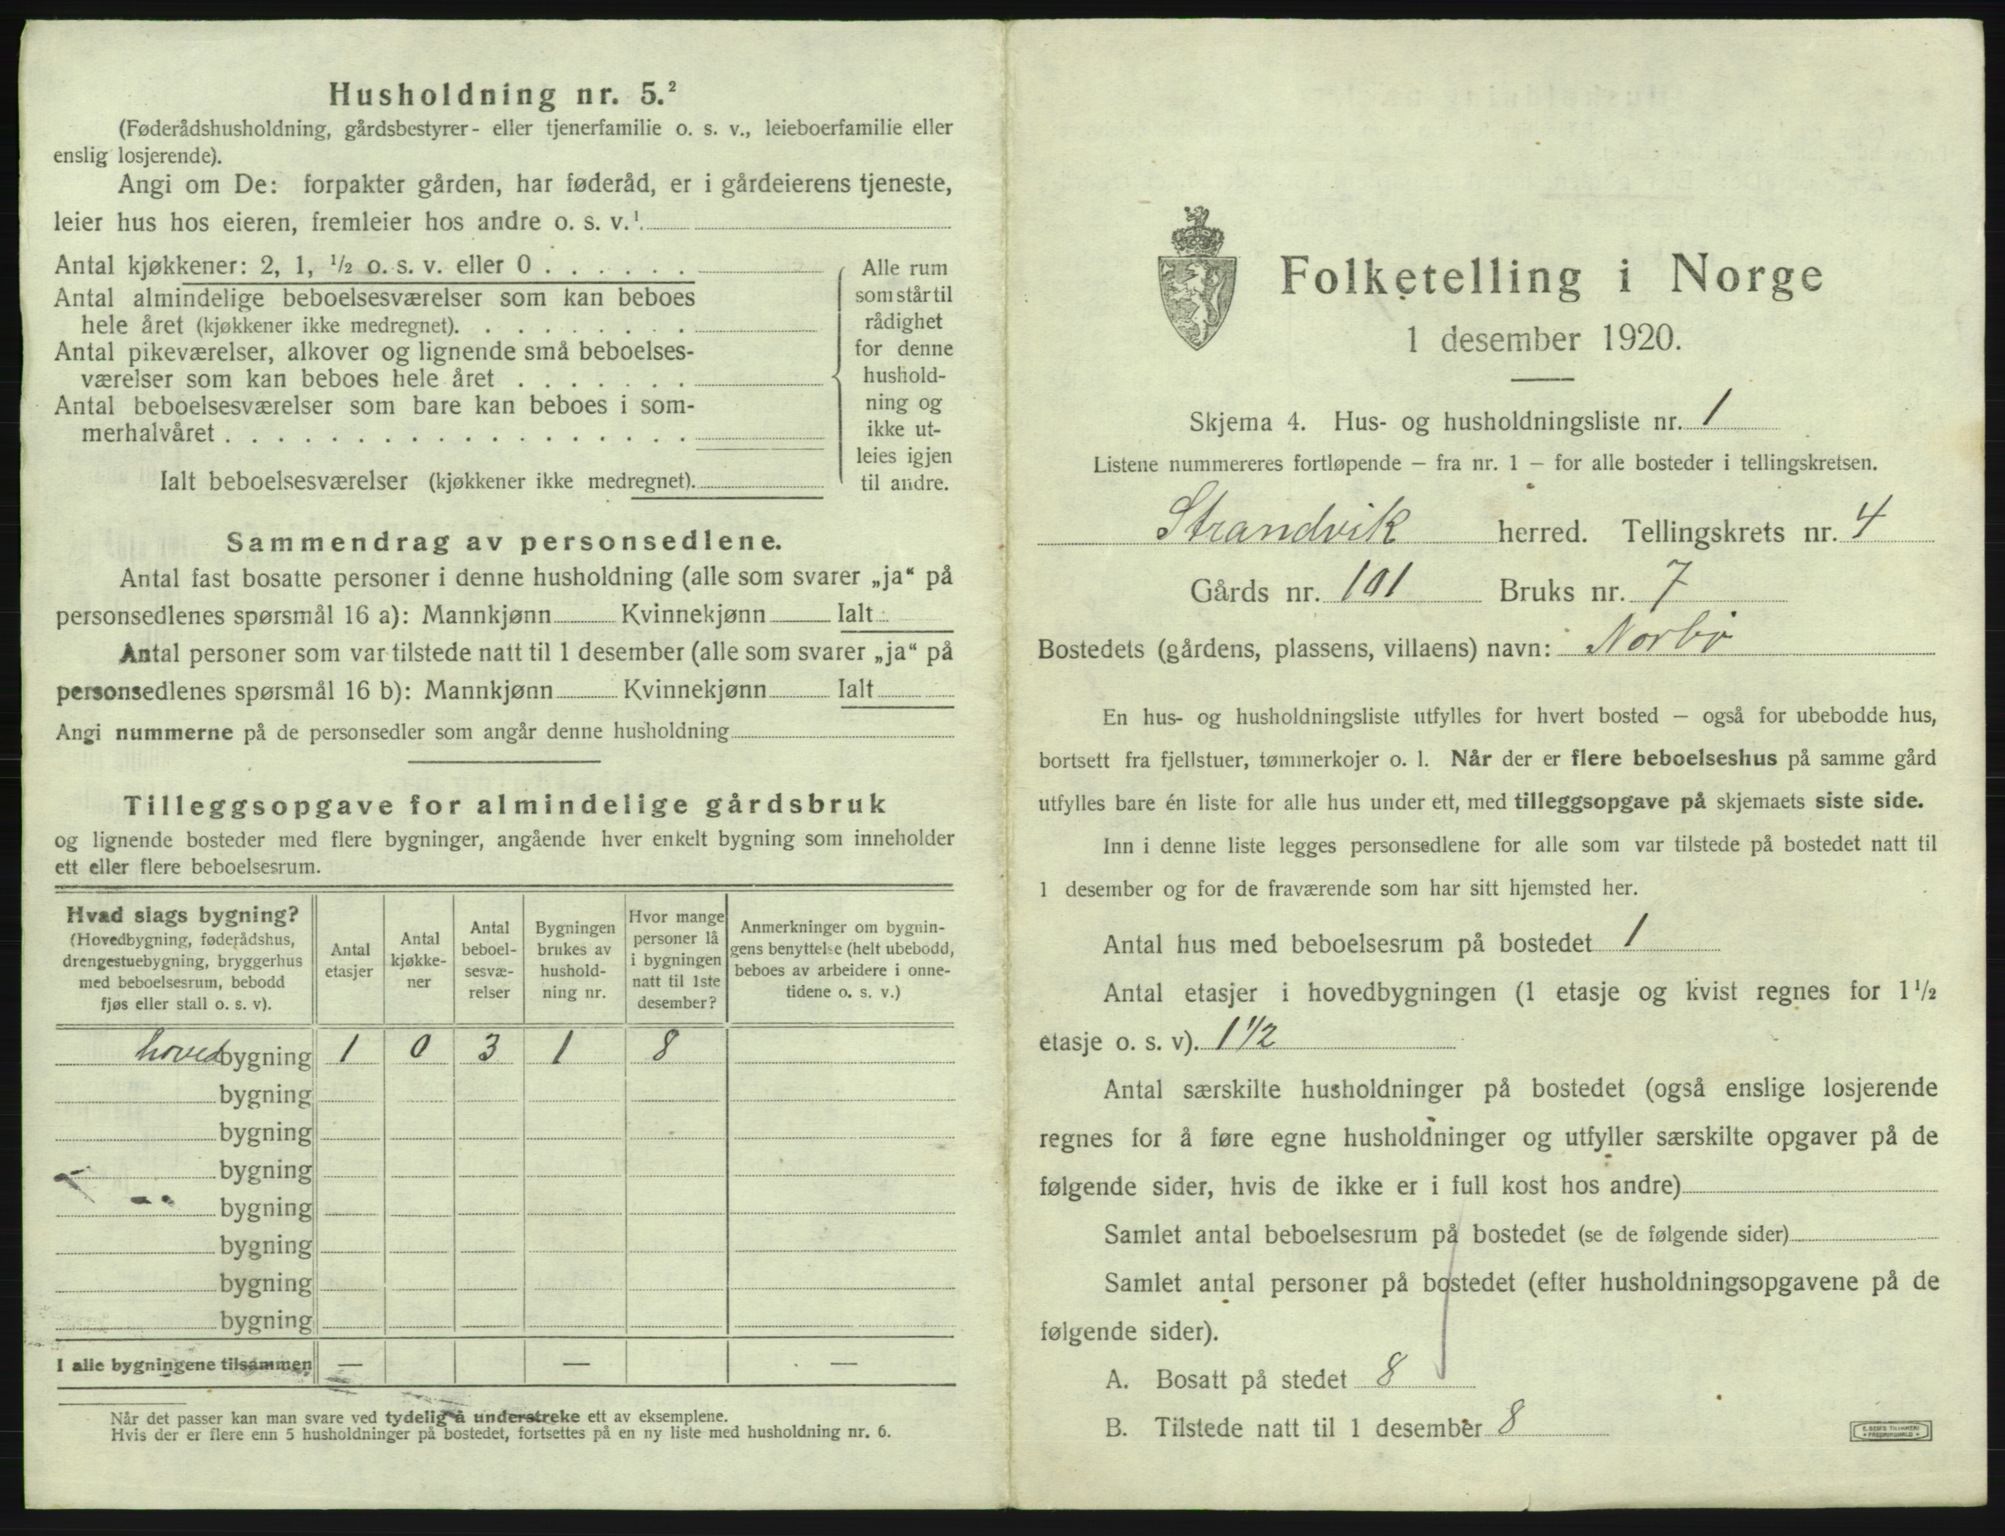 Husholdning nr. 5.²
(Føderådshusholdning, gårdsbestyrer- eller tjenerfamilie o. s. v., leieboerfamilie eller
enslig losjerende).
Angi om De: forpakter gården, har føderåd, er i gårdeierens tjeneste,
leier hus hos eieren, fremleier hos andre o. s. v.¹
Antal kjøkkener: 2, 1, ½ o. s. v. eller 0 . . . . . .
Antal almindelige beboelsesværelser som kan beboes
hele året (kjøkkener ikke medregnet). . . . . . . . .
Antal pikeværelser, alkover og lignende små beboelses-
værelser som kan beboes hele året . . . . . . .
Antal beboelsesværelser som bare kan beboes i som-
merhalvåret . . . . . . . . . . . . . . . . . .
Ialt beboelsesværelser (kjøkkener ikke medregnet).
Alle rum
som står til
rådighet
for denne
hushold-
ning og
ikke ut-
leies igjen
til andre.
Sammendrag av personsedlene.
Antal fast bosatte personer i denne husholdning (alle som svarer „ja“ på
personsedlenes spørsmål 16 a): Mannkjønn Kvinnekjønn Ialt
Antal personer som var tilstede natt til 1 desember (alle som svarer „ja“ på
personsedlenes spørsmål 16 b): Mannkjønn Kvinnekjønn Ialt
Angi nummerne på de personsedler som angår denne husholdning
Tilleggsopgave for almindelige gårdsbruk
og lignende bosteder med flere bygninger, angående hver enkelt bygning som inneholder
ett eller flere beboelsesrum.
Hvad slags bygning?
(Hovedbygning, føderådshus,
drengestuebygning, bryggerhus
med beboelsesrum, bebodd
fjøs eller stall o. s. v).
Antal
etasjer
Antal
kjøkke-
ner
Antal
beboel-
sesvæ-
relser
Bygningen
brukes av
hushold-
ning nr.
Hvor mange
personer lå
i bygningen
natt til 1ste
desember?
Anmerkninger om bygnin-
gens benyttelse (helt ubebodd,
beboes av arbeidere i onne-
tidene o. s. v.)
hovedbygning 1 0 3 1 8
bygning
bygning
bygning
bygning
bygning
bygning
bygning
I alle bygningene tilsammen — — —
Når det passer kan man svare ved tydelig å understreke ett av eksemplene.
Hvis der er flere enn 5 husholdninger på bostedet, fortsettes på en ny liste med husholdning nr. 6.
Folketelling i Norge
1 desember 1920.
Skjema 4. Hus- og husholdningsliste nr. 1
Listene nummereres fortløpende – fra nr. 1 – for alle bosteder i tellingskretsen.
Strandvik herred. Tellingskrets nr. 4
Gårds nr. 101 Bruks nr. 7
Bostedets (gårdens, plassens, villaens) navn: Norbø
En hus- og husholdningsliste utfylles for hvert bosted – også for ubebodde hus,
bortsett fra fjellstuer, tømmerkojer o. l. Når der er flere beboelseshus på samme gård
utfylles bare én liste for alle hus under ett, med tilleggsopgave på skjemaets siste side.
Inn i denne liste legges personsedlene for alle som var tilstede på bostedet natt til
1 desember og for de fraværende som har sitt hjemsted her.
Antal hus med beboelsesrum på bostedet 1
Antal etasjer i hovedbygningen (1 etasje og kvist regnes for 1½
etasje o. s. v). 1½
Antal særskilte husholdninger på bostedet (også enslige losjerende
regnes for å føre egne husholdninger og utfyller særskilte opgaver på de
følgende sider, hvis de ikke er i full kost hos andre)
Samlet antal beboelsesrum på bostedet (se de følgende sider)
Samlet antal personer på bostedet (efter husholdningsopgavene på de
følgende sider).
A. Bosatt på stedet 8
B. Tilstede natt til 1 desember 8